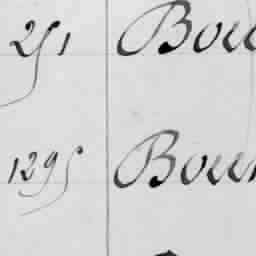 251 Bou
1295 Bour